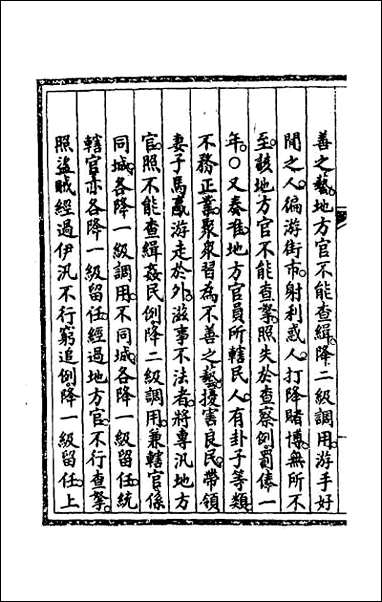 善之藝地方官不能查緝降二級調用游手好
閒之人徧游街市射利惑人打降賭博無所不
至該地方官不能查拏照失於查察例罰俸一
年○又奏准地方官員所轄民人有卦子等類
不務正業聚衆習為不善之藝擾害良民帶領
妻子馬驘游走於外滋事不法者將專汛地方
官照不能查緝姦民例降二級調用兼轄官係
同城各降一級調用不同城各降一級留任統
轄官亦各降一級留任經過地方官不行查拏
照盜賊經過伊汛不行窮追例降一級留任上